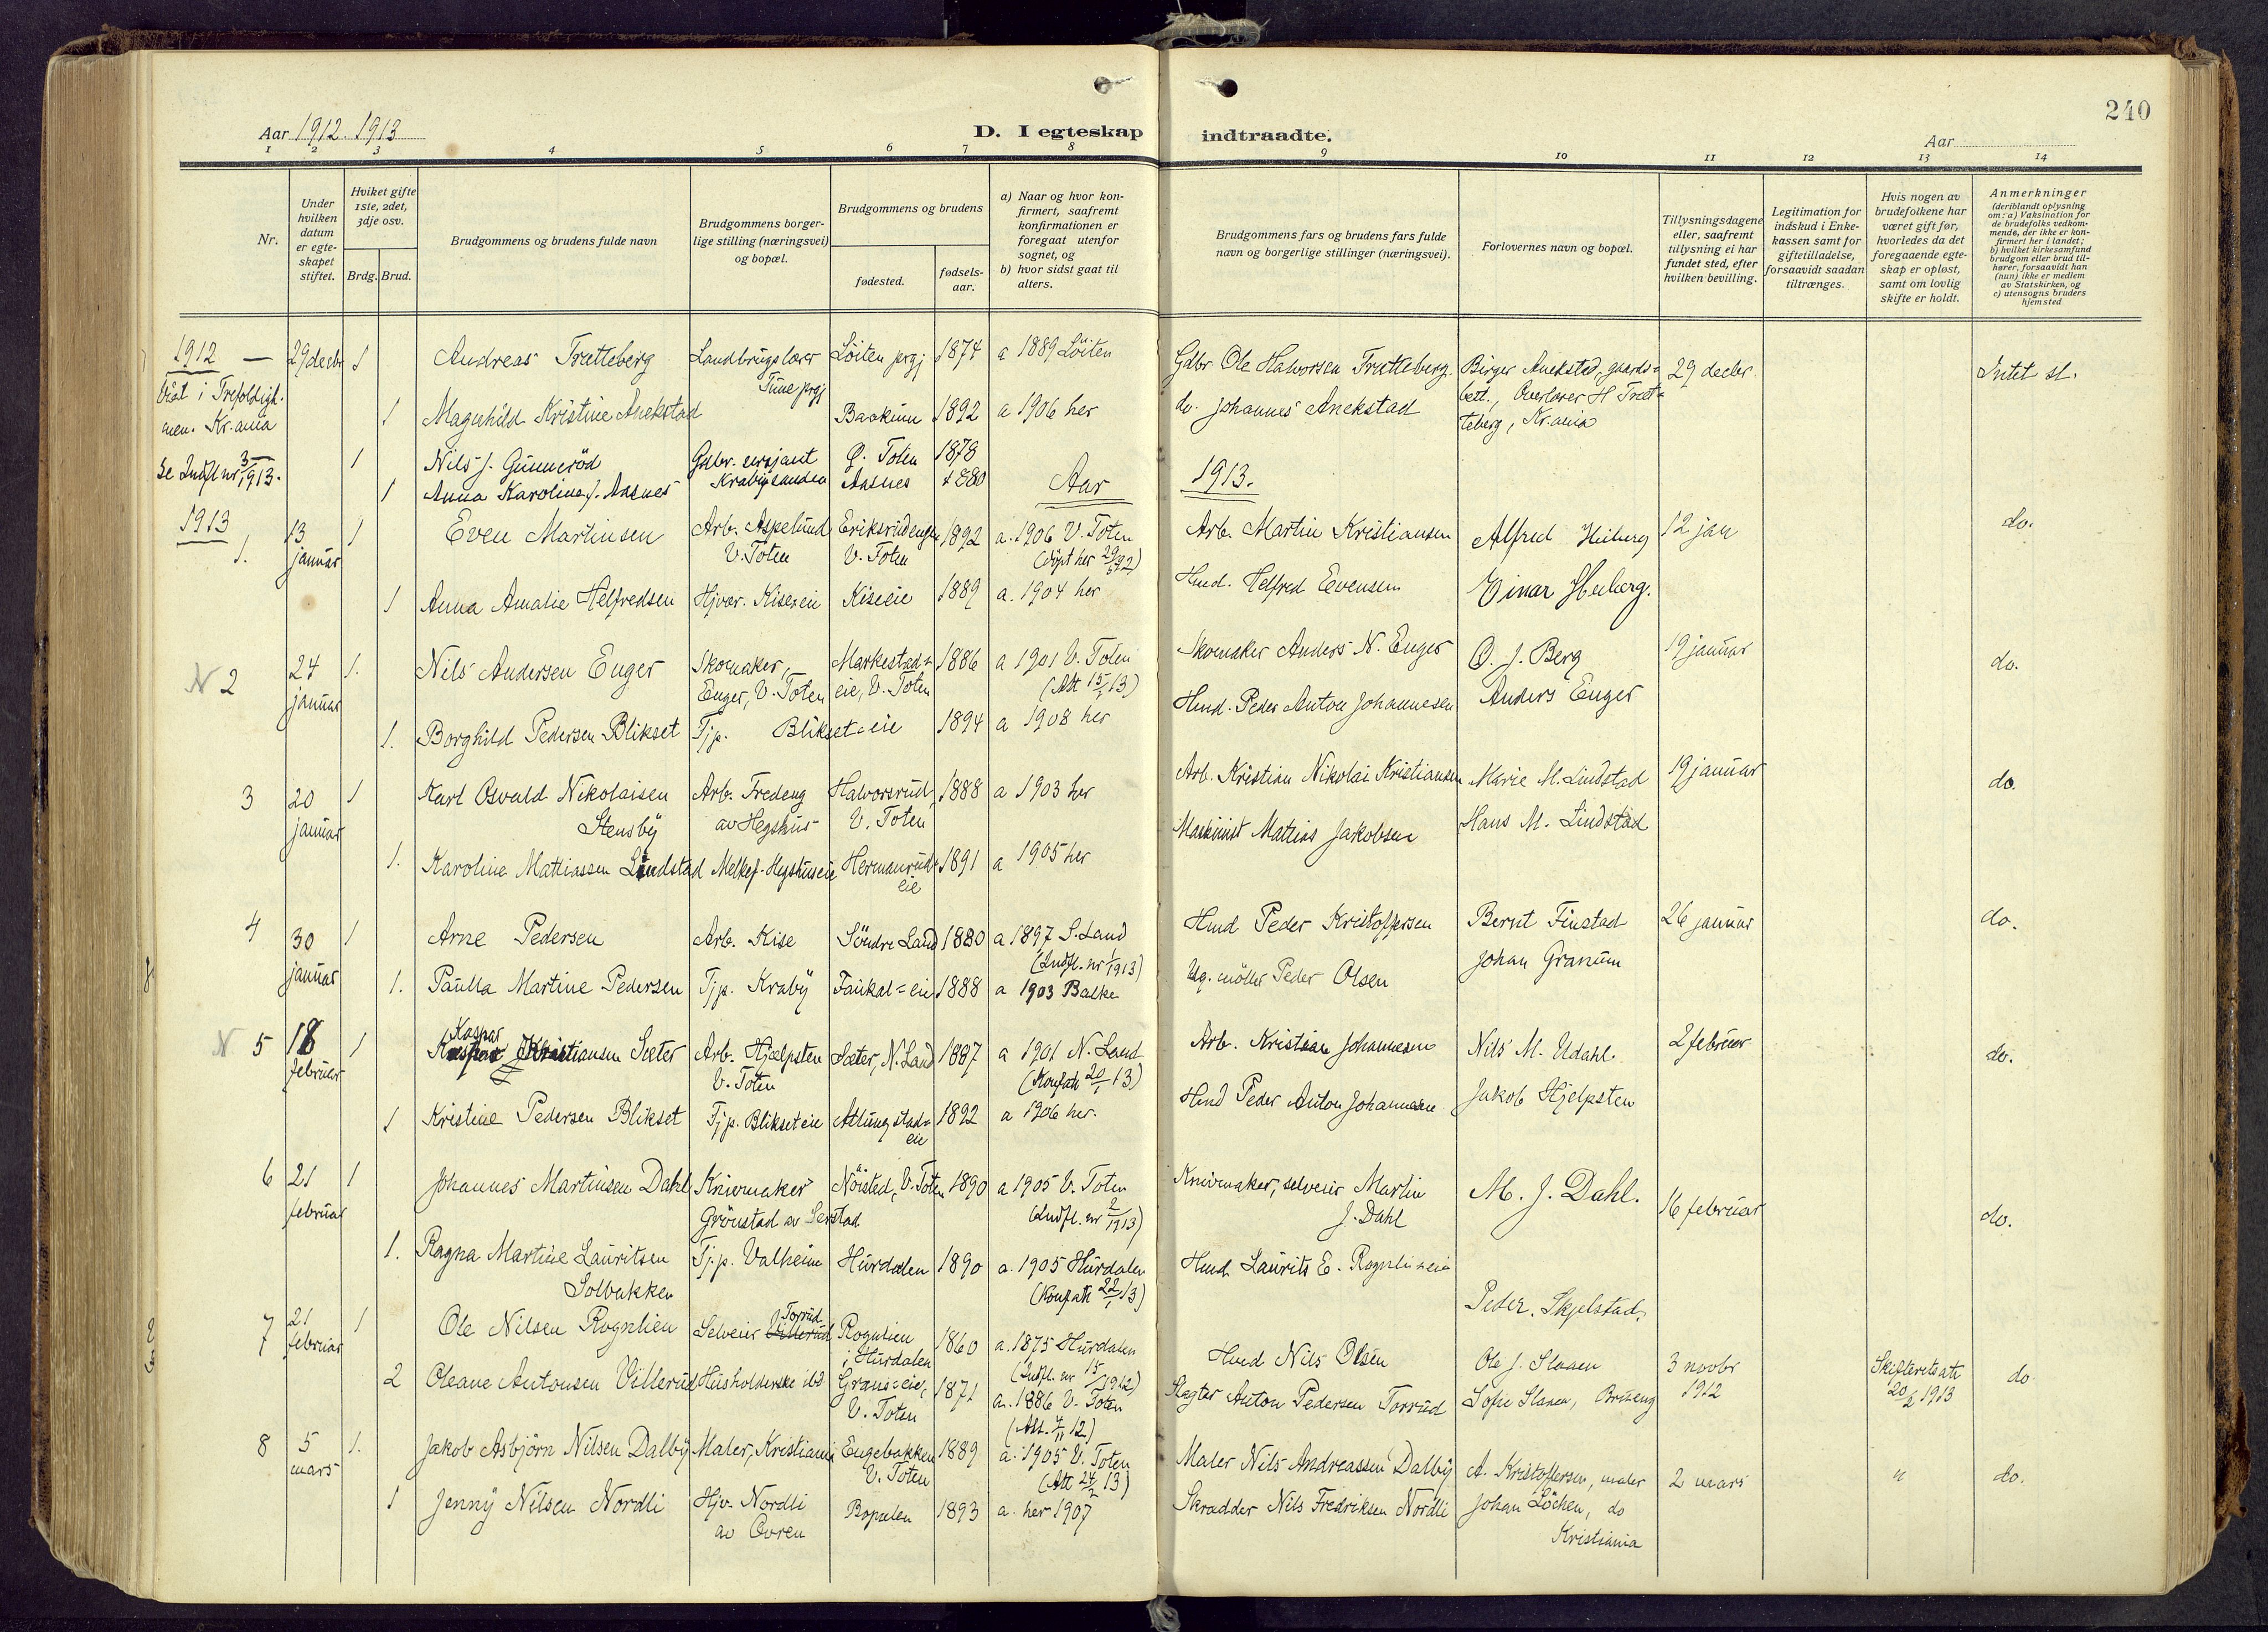 240
Aar 1912. 1913
D. I egteskap indtraadte.
Aar
1 2 3 4 5 6 7 8 9 10 11 12 13 14
Nr.
Under hvilken datum er egteskapet stiftet.
Hviket gifte 1ste, 2det, 3dje osv.
Brdg. Brud.
Brudgommens og brudens fulde navn
Brudgommens borgerlige stilling (næringsvei) og bopæl.
Brudgommens og brudens
fødested.
fødselsaar.
a) Naar og hvor konfirmert, saafremt konfirmationen er foregaat utenfor sognet, og
b) hvor sidst gaat til alters.
Brudgommens fars og brudens fars fulde navn og borgerlige stillinger (næringsvei).
Forlovernes navn og bopæl.
Tillysningsdagene eller, saafremt tillysning ei har fundet sted, efter hvilken bevilling.
Legitimation for indskud i Enkekassen samt for giftetilladelse, forsaavidt saadan tiltrænges.
Hvis nogen av brudefolkene har været gift før, hvorledes da det foregaaende egteskap er opløst, samt om lovlig skifte er holdt.
Anmerkninger (deriblandt oplysning om: a) Vaksination for de brudefolks vedkommende, der ikke er konfirmert her i landet; b) hvilket kirkesamfund brudgom eller brud tilhører, forsaavidt han (hun) ikke er medlem av Statskirken, og c) utensogns bruders hjemsted
1912 — 29 decbr 1 Andreas Trætteberg Landbrugslærer Tune prgj Löiten prgj 1874 a 1889 Löiten Gdbr Ole Halvorsen Trætteberg. Birger Anekstad, gaards- 29 decbr. Intet sl.
Viet i Trefoldigh. Kr.ania
1 Magnhild Kristine Anekstad Baakinn 1892 a 1906 her do. Johannes Anekstad best., Overlærer H Træt- teberg, Kr.ania
Se Indfl nr 3/1913.
1 Nils J. Gunneröd Gdbr. sersjant Krabysanden Ø. Toten 1878
1 Anna Karoline J. Aasnes Aasnes 1880
Aar 1913.
1913
1. 13 januar 1 Even Martinsen Arb. Aspelund V. Toten Eriksrudengen V. Toten 1892 a. 1906 V. Toten (döpt her 29/6 92) Arb. Martin Kristiansen Alfred Heiberg 12 jan do.
1 Anna Amalie Helfredsen Hjvær. Kiseeie Kiseeie 1889 a. 1904 her Hmd. Helfred Evensen Einar Heiberg.
N 2 24 januar 1. Nils Andersen Enger Skomaker, Enger, V. Toten Markestad-eie, V. Toten 1886 a 1901 V. Toten (Att 15/1 13) Skomaker Anders N. Enger O. J. Berg 19 januar do.
1. Borghild Pedersen Blikset Tjp. Blikset-eie 1894 a 1908 her Hmd. Peder Anton Johannesen Anders Enger
3 20 januar 1 Karl Osvald Nikolaisen Stensby Arb. Fredeng av Hegshus Halvorsrud, V. Toten 1888 a 1903 her Arb. Kristian Nikolai Kristiansen Marie M. Lindstad 19 januar do.
1. Karoline Mattiassen Lindstad Melkef. Hegshuseie Hermanrud-eie 1891 a 1905 her Maskinist Mattias Jakobsen Hans M. Lindstad
4 30 januar 1 Arne Pedersen Arb. Kise Söndre Land 1880 a 1897 S. Land (Indfl. nr 1/1913) Hmd Peder Kristoffersen Bernt Finstad 26 januar do.
1. Paulla Martine Pedersen Tjp. Kraby Faukal-eie 1888 a 1903 Balke Ug. möller Peder Olsen Johan Granum
N 5 18 februar 1 Kaspar Kristiansen Sæter Arb. Hjælpsten V. Toten Sæter, N. Land 1887 a 1901 N. Land (Konfatt 20/1 13) Arb. Kristian Johannesen Nils M. Udahl. 2 februar do.
1 Kristine Pedersen Blikset Tjp. Blikseteie Atlungstad-eie 1892 a 1906 her. Hmd Peder Anton Johannesen Jakob Hjelpsten
6 21 februar 1 Johannes Martinsen Dahl Knivmaker Grönstad av Serstad Nöistad, V. Toten 1890 a 1905 V. Toten (Indfl. nr 2/1913) Knivmaker, selveier Martin J. Dahl M. J. Dahl. 16 februar do.
1. Ragna Martine Lauritsen Solbakken Tjp. Valheim Hurdalen 1890 a. 1905 Hurdalen (Konfatt 22/1 13) Hmd Laurits E. Rognlieneie Peder. Skjelstad.
7 21 februar 1 Ole Nilsen Rognlien Selveier Torrud Villerud Rognlien i Hurdalen 1860 a. 1875 Hurdalen (Indfl. nr 15/1912) Hmd Nils Olsen Ole J. Slaaen 3 novbr 1912 Skifteretsatt 20/2 1913 do
2 Oleane Antonsen Villerud Husholderske ibd Grans-eie, V. Toten 1871 a. 1886 V. Toten (Att. 4/11 12) Slagter Anton Pedersen Torrud Sofie Slaaen, Bröeng
8 5 mars 1. Jakob Asbjörn Nilsen Dalby Maler, Kristiania Engebakken V. Toten 1889 a. 1905 V. Toten (Att 24/2 13) Maler Nils Andreassen Dalby A. Kristoffersen, maler 2 mars " do.
1 Jenny Nilsen Nordli Hjv. Nordli av Ovren Bopælen 1893 a. her 1907 Skrædder Nils Fredriksen Nordli Johan Löchen, do Kristiania